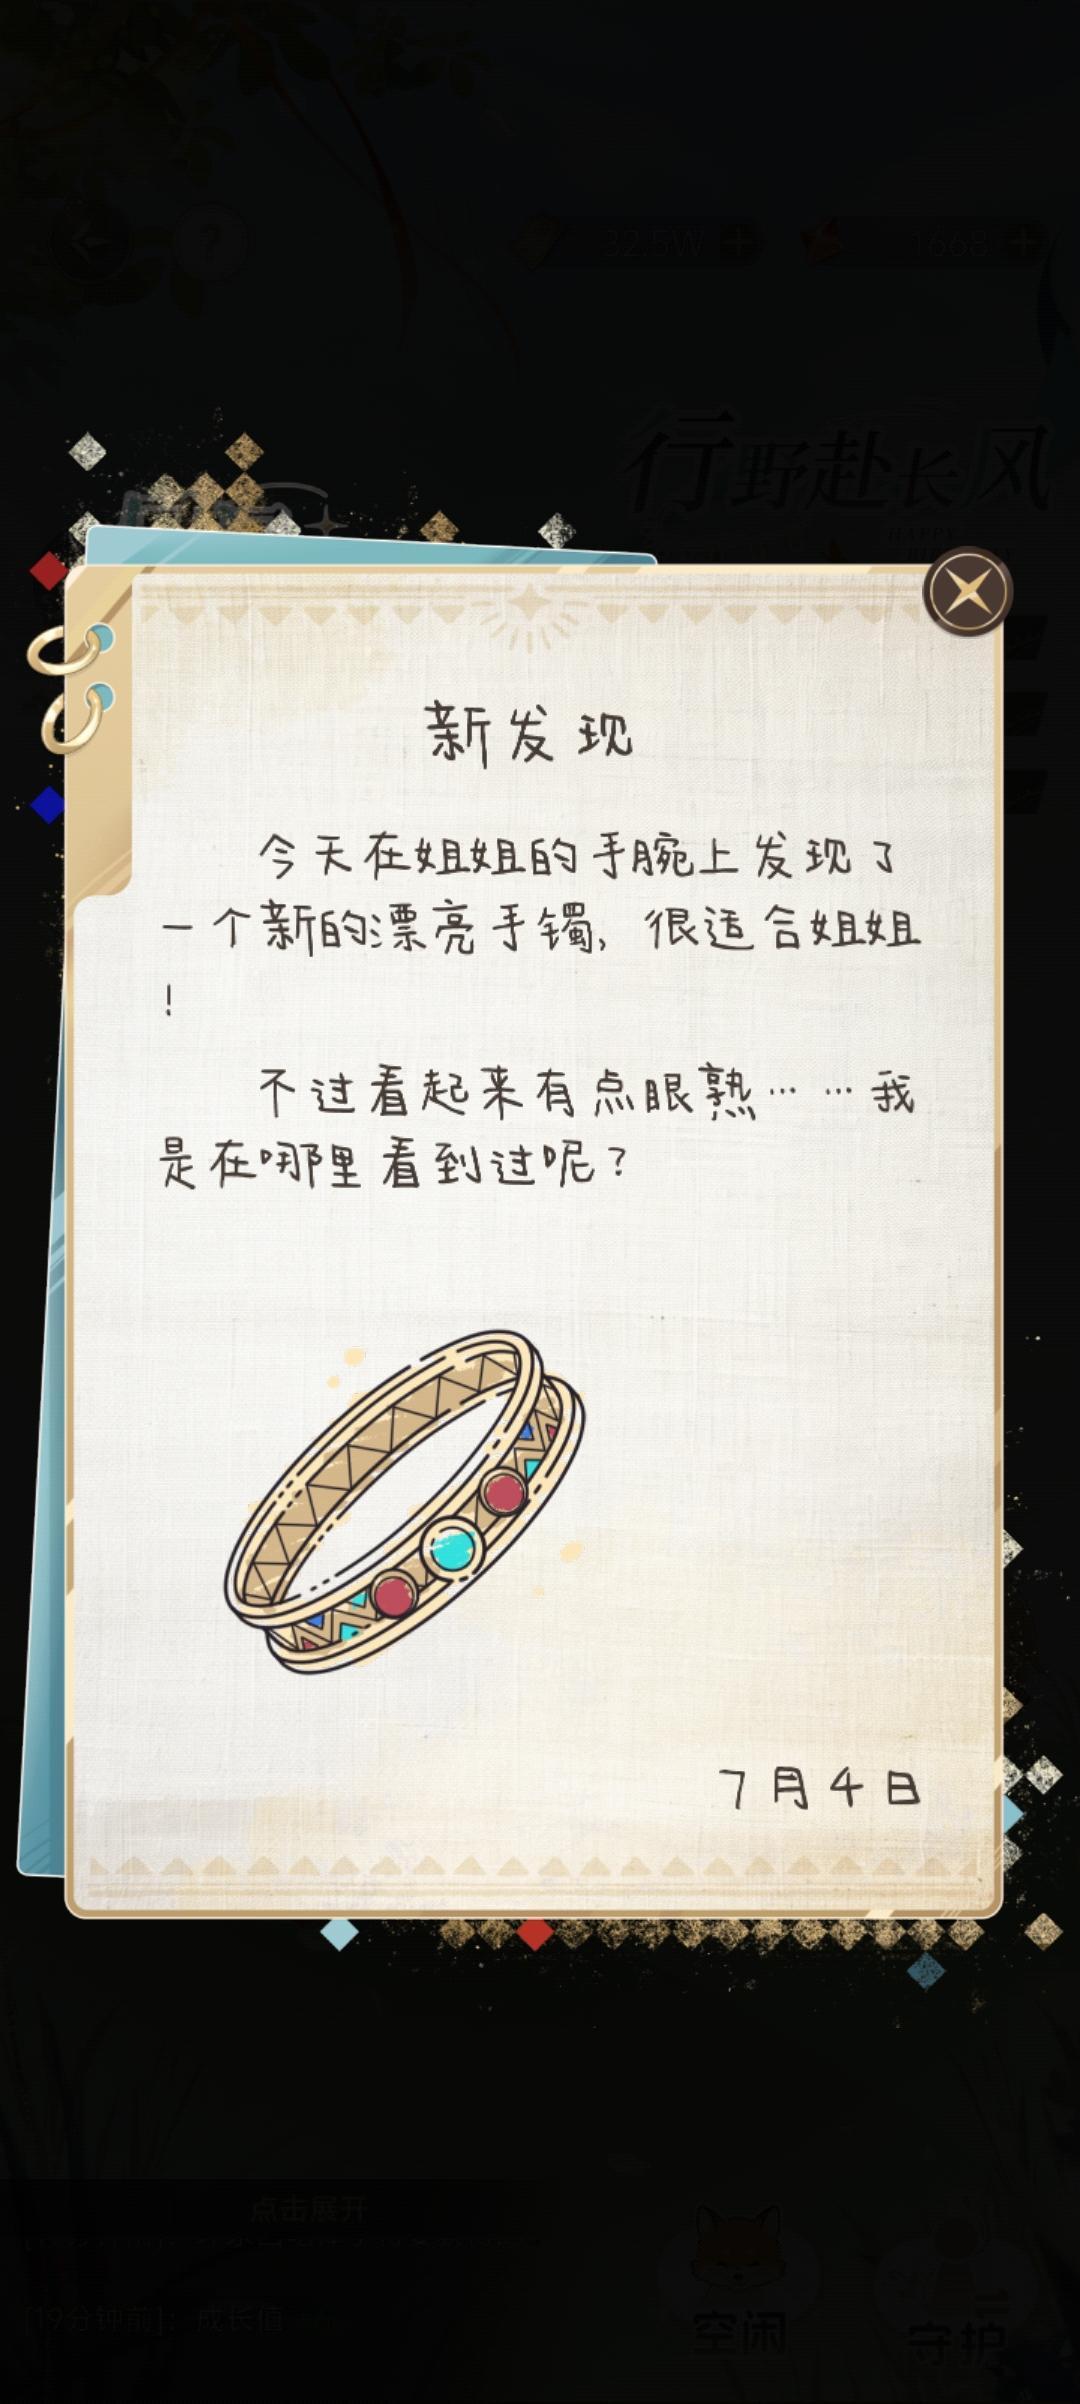 32.5W
1668
行野赴长风
HAPPY
新发现
今天在姐姐的手腕上发现了
一个新的漂亮手镯，很适合姐姐
！
不过看起来有点眼熟……我
是在哪里看到过呢？
7月4日
点击展开
[19分钟前]：成长值
空闲
守护